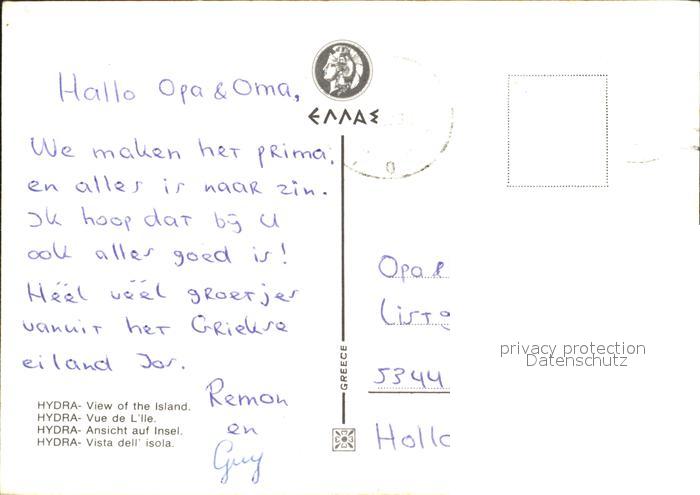 Hallo Opa & Oma,
ΕΛΛΑΣ
We maken het prima,
en alles is naar zin.
Ik hoop dat bij U
ook alles goed is!
Héél véél groetjes
vanuit het Griekse
eiland Ios.
Remon
en
Guy
HYDRA- View of the Island.
HYDRA- Vue de L'Ile.
HYDRA- Ansicht auf Insel.
HYDRA- Vista dell' isola.
GREECE
Opa &
5344
Holl
privacy protection
Datenschutz